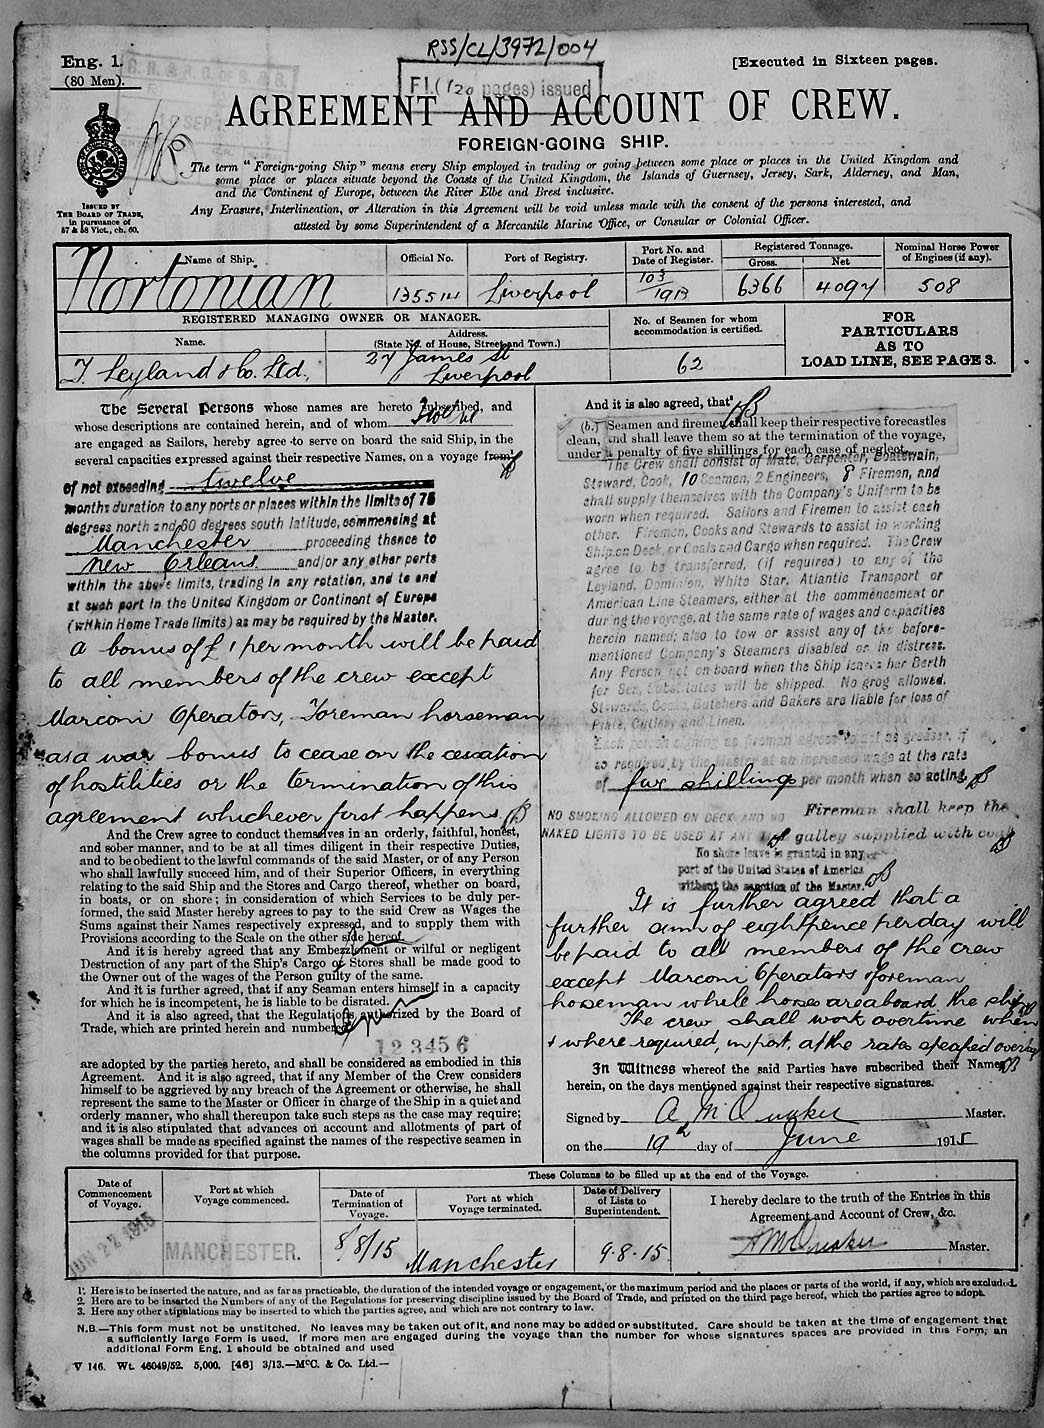 RSS/CL/3972/004
Eng. 1.
(80 Men).
[Executed in Sixteen pages.
F1.(120 pages) issued
AGREEMENT AND ACCOUNT OF CREW.
FOREIGN-GOING SHIP.
ISSUED BY
THE BOARD OF TRADE,
in pursuance of
57 & 58 Vict., ch. 60.
The term "Foreign-going Ship" means every Ship employed in trading or going between some place or places in the United Kingdom and
some place or places situate beyond the Coasts of the United Kingdom, the Islands of Guernsey, Jersey, Sark, Alderney, and Man,
and the Continent of Europe, between the River Elbe and Brest inclusive.
Any Erasure, Interlineation, or Alteration in this Agreement will be void unless made with the consent of the persons interested, and
attested by some Superintendent of a Mercantile Marine Office, or Consular or Colonial Officer.
Name of Ship. Official No. Port of Registry. Port No. and Date of Register. Registered Tonnage. Gross. Net Nominal Horse Power of Engines (if any).
Nortonian 135514 Liverpool 103/1913 6366 4097 508
REGISTERED MANAGING OWNER OR MANAGER.
Name. Address. (State No. of House, Street and Town.)
F. Leyland & Co. Ltd., 27 James St
Liverpool
No. of Seamen for whom accommodation is certified.
62
FOR
PARTICULARS
AS TO
LOAD LINE, SEE PAGE 3.
The Several Persons whose names are hereto subscribed, and
whose descriptions are contained herein, and of whom twelve
are engaged as Sailors, hereby agree to serve on board the said Ship, in the
several capacities expressed against their respective Names, on a voyage from
of not exceeding twelve
months duration to any ports or places within the limits of 75
degrees north and 60 degrees south latitude, commencing at
Manchester proceeding thence to
New Orleans and/or any other ports
within the above limits, trading in any rotation, and to end
at such port in the United Kingdom or Continent of Europe
(within Home Trade limits) as may be required by the Master.
A bonus of £1 per month will be paid
to all members of the crew except
Marconi Operators, Foreman horseman
as a war bonus to cease on the cessation
of hostilities or the termination of this
agreement whichever first happens.
And the Crew agree to conduct themselves in an orderly, faithful, honest,
and sober manner, and to be at all times diligent in their respective Duties,
and to be obedient to the lawful commands of the said Master, or of any Person
who shall lawfully succeed him, and of their Superior Officers, in everything
relating to the said Ship and the Stores and Cargo thereof, whether on board,
in boats, or on shore; in consideration of which Services to be duly per-
formed, the said Master hereby agrees to pay to the said Crew as Wages the
Sums against their Names respectively expressed, and to supply them with
Provisions according to the Scale on the other side hereof.
And it is hereby agreed that any Embezzlement or wilful or negligent
Destruction of any part of the Ship's Cargo or Stores shall be made good to
the Owner out of the wages of the Person guilty of the same.
And it is further agreed, that if any Seaman enters himself in a capacity
for which he is incompetent, he is liable to be disrated.
And it is also agreed, that the Regulations authorized by the Board of
Trade, which are printed herein and numbered
1 2 3 4 5 6
are adopted by the parties hereto, and shall be considered as embodied in this
Agreement. And it is also agreed, that if any Member of the Crew considers
himself to be aggrieved by any breach of the Agreement or otherwise, he shall
represent the same to the Master or Officer in charge of the Ship in a quiet and
orderly manner, who shall thereupon take such steps as the case may require;
and it is also stipulated that advances on account and allotments of part of
wages shall be made as specified against the names of the respective seamen in
the columns provided for that purpose.
And it is also agreed, that
(b.) Seamen and firemen shall keep their respective forecastles
clean, and shall leave them so at the termination of the voyage,
under a penalty of five shillings for each case of neglect.
The Crew shall consist of Mate, Carpenter, Boatswain,
Steward, Cook, 10 Seamen, 2 Engineers, 8 Firemen, and
shall supply themselves with the Company's Uniform to be
worn when required. Sailors and Firemen to assist each
other. Firemen, Cooks and Stewards to assist in working
Ship on Deck, or Coals and Cargo when required. The Crew
agree to be transferred, (if required) to any of the
Leyland, Dominion, White Star, Atlantic Transport or
American Line Steamers, either at the commencement or
during the voyage, at the same rate of wages and capacities
herein named; also to tow or assist any of the before-
mentioned Company's Steamers disabled or in distress.
Any Person not on board when the Ship leaves her Berth
for Sea, Substitutes will be shipped. No grog allowed.
Stewards, Cooks, Butchers and Bakers are liable for loss of
Plate, Cutlery and Linen.
Each person signing as fireman agrees to act as greaser, if
so required by the Master at an increased wage at the rate
of five shillings per month when so acting.
NO SMOKING ALLOWED ON DECK AND NO
NAKED LIGHTS TO BE USED AT ANY
Fireman shall keep the
galley supplied with coal
No shore leave is granted in any
port of the United States of America
without the sanction of the Master.
It is further agreed that a
further sum of eightpence per day will
be paid to all members of the crew
except Marconi Operators & foreman
horseman while horses are aboard the ship
The crew shall work overtime when
& where required, in port, at the rates specified overleaf
In Witness whereof the said Parties have subscribed their Names
herein, on the days mentioned against their respective signatures.
Signed by A. M Quaker Master.
on the 19th day of June 1915
These Columns to be filled up at the end of the Voyage.
Date of Commencement of Voyage. Port at which Voyage commenced. Date of Termination of Voyage. Port at which Voyage terminated. Date of Delivery of Lists to Superintendent.
JUN 22 1915 MANCHESTER. 8/8/15 Manchester 9-8-15
I hereby declare to the truth of the Entries in this
Agreement and Account of Crew, &c.
A M Quaker Master.
1. Here is to be inserted the nature, and as far as practicable, the duration of the intended voyage or engagement, or the maximum period and the places or parts of the world, if any, which are excluded.
2. Here are to be inserted the Numbers of any of the Regulations for preserving discipline issued by the Board of Trade, and printed on the third page hereof, which the parties agree to adopt.
3. Here any other stipulations may be inserted to which the parties agree, and which are not contrary to law.
N.B.—This form must not be unstitched. No leaves may be taken out of it, and none may be added or substituted. Care should be taken at the time of engagement that
a sufficiently large Form is used. If more men are engaged during the voyage than the number for whose signatures spaces are provided in this Form, an
additional Form Eng. 1 should be obtained and used
V 146. Wt. 46049/52. 5,000. [46] 3/13.—McC. & Co. Ltd.—